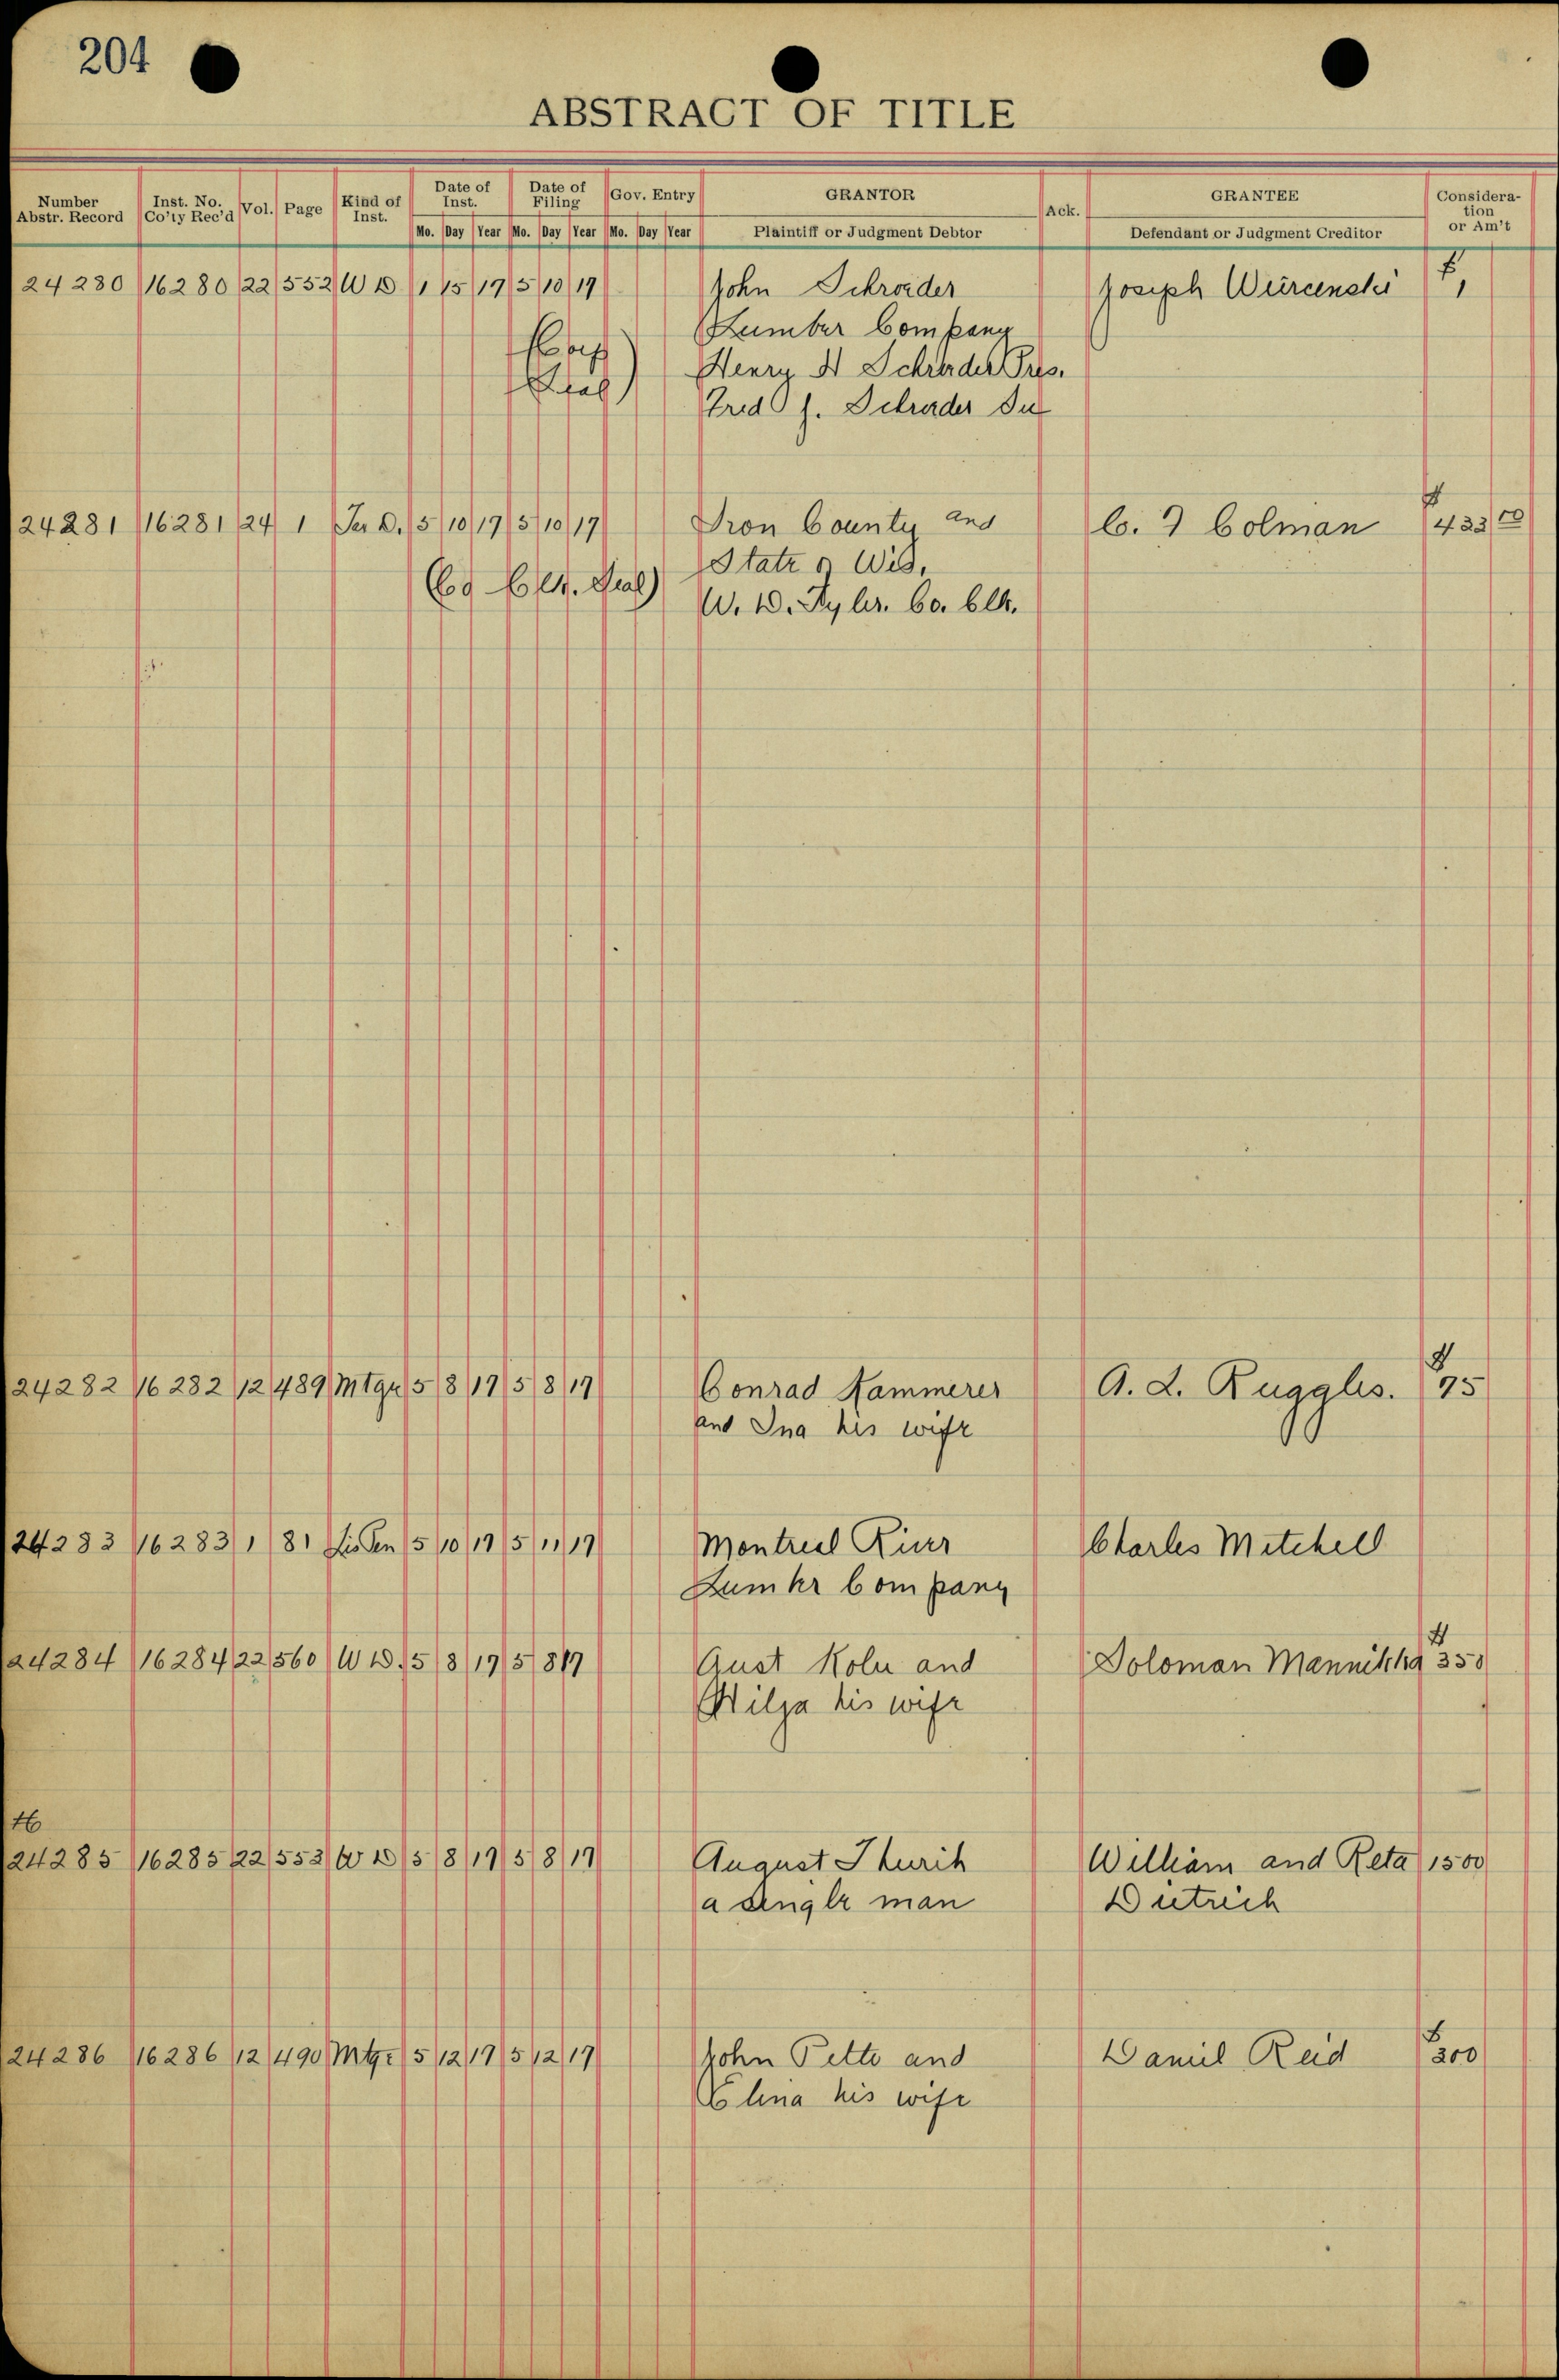 204
ABSTRACT OF TITLE
Number Abstr. Record Inst. No. Co'ty Rec'd Vol. Page Kind of Inst. Date of Inst. Date of Filing Gov. Entry GRANTOR Ack. GRANTEE Consideration or Am't
Mo. Day Year Mo. Day Year Mo. Day Year Plaintiff or Judgment Debtor Defendant or Judgment Creditor
24280 16280 22 552 W D 1 15 17 5 10 17 John Schroeder Joseph $1
Lumber Company
(Corp Henry Schroeder Pres.
Seal) Fred J. Schroeder
24281 16281 24 1 5 10 17 5 10 17 Iron County and C. Colman $433
State of Wis.
(Co Clk. Seal) W. D. Tyler. Co. Clk.
24282 16282 12 489 Mtge 5 8 17 5 8 17 Conrad Kammerer A. L. Ruggles. $75
and Ina his wife
24283 16283 1 81 Lis Pen 5 10 17 5 11 17 Montreal River Charles Mitchell
Lumber Company
24284 16284 22 560 W D. 5 8 17 5 8 17 Gust and Soloman Mannikka $350
Hilja his wife
24285 16285 22 553 W D 5 8 17 5 8 17 August William and Reta 1500
a single man Dietrich
24286 16286 12 490 Mtge 5 12 17 5 12 17 John Petto and Daniel Reid $300
Elina his wife